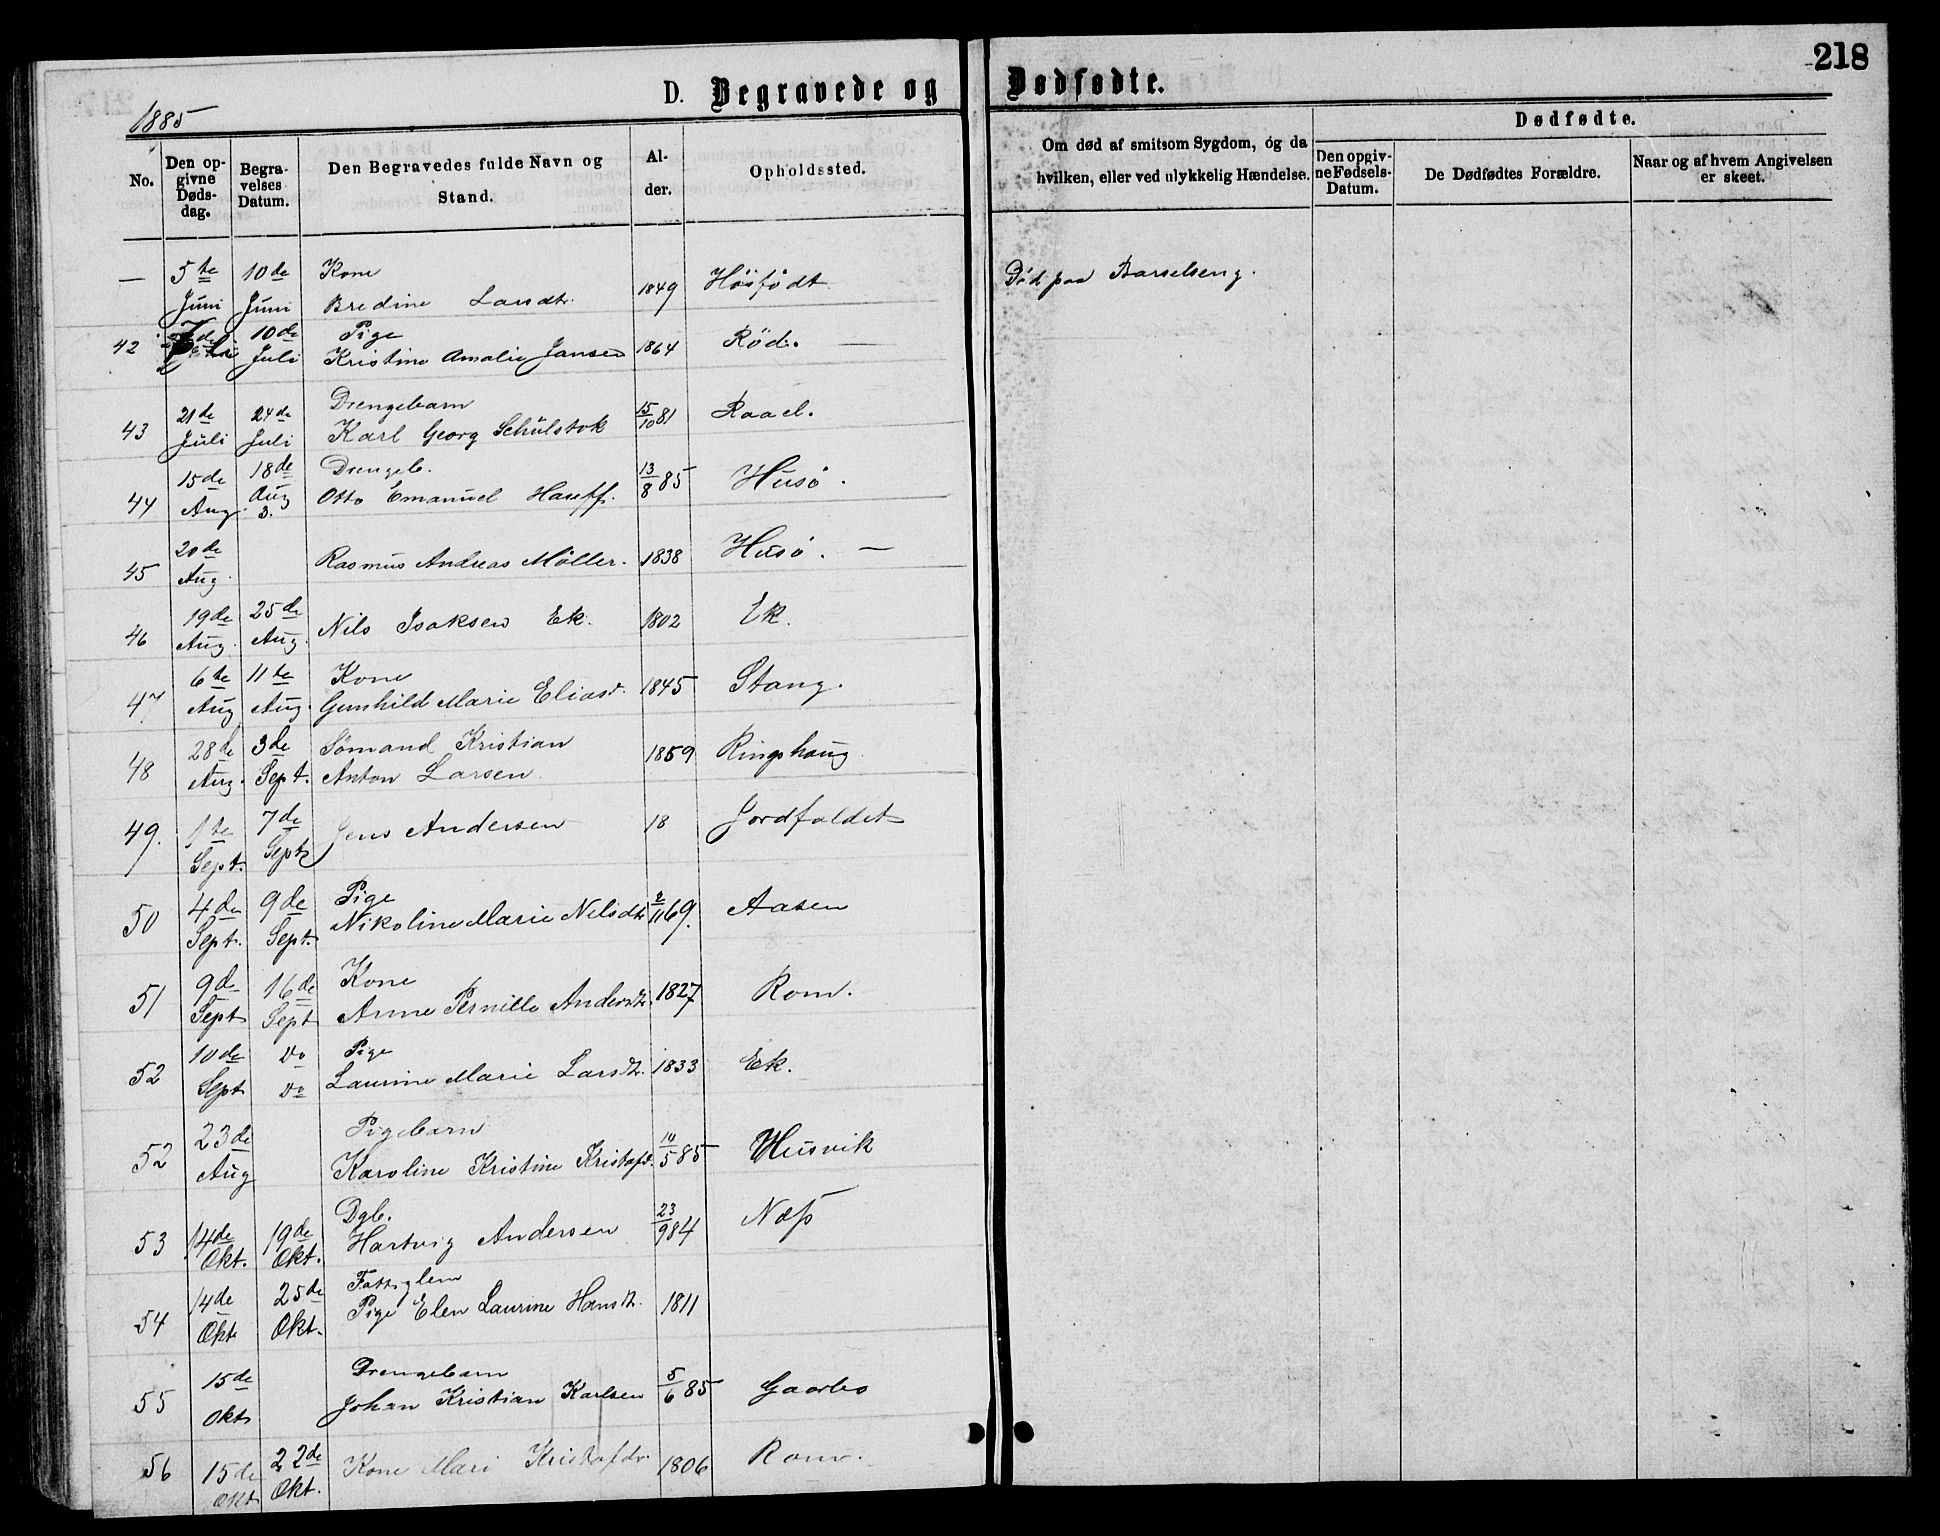 218
D. Begravede og Dødfødte.
1885
No.
Den opgivne Dødsdag.
Begravelses Datum.
Den Begravedes fulde Navn og Stand.
Alder.
Opholdssted.
Om død af smitsom Sygdom, og da hvilken, eller ved ulykkelig Hændelse.
Dødfødte.
Den opgivne Fødsels-Datum.
De Dødfødtes Forældre.
Naar og af hvem Angivelsen er skeet.
— 5te Juni 10de Juni Kone Bredine Larsdtr. 1849 Høifødt Død paa Barselseng.
42 10de Juli Pige Kristine Amalie Jansen 1864 Rød. —
43 21de Juli 24de Juli Drengebarn Karl Georg Schülstok 15/10 81 Raael.
44 15de Aug. 18de Aug 3. Drengeb. Otto Emanuel Hauff. 13/8 85 Husø.
45 20de Aug. Rasmus Andreas Møller. 1838 Husø. —
46 19de Aug. 25de Aug. Nils Isaksen Ek. 1802 Ek.
47 6te Aug 11te Aug. Kone Gunhild Marie Eliasd. 1845 Stang.
48 28de Aug. 3de Sept. Sømand Kristian Anton Larsen 1859 Ringshaug
49. 1te Sept. 7de Sept Jens Andersen 18 Jordfaldet
50 4de Sept. 9de Sept. Pige Nikoline Marie Nilsdtr 2/11 69. Aasen
51 9de Sept 16de Sept Kone Anne Pernille Andersdtr. 1827 Rom.
52 10de Sept Do Do Pige Laurine Marie Larsdtr. 1833 Ek.
52 23de Aug Pigebarn Karoline Kristine Kristofd. 14/5 85 Husvik
53 14de Okt. 19de Okt. Dgb. Hartvig Andersen 23/9 84 Næss
54 14de Okt 25de Okt. Fattiglem Pige Elen Laurine Hansdtr. 1811
55 15de Okt Drengebarn Johan Kristian Karlsen 5/6 85 Gaarbo
56 15de Okt 22de Okt. Kone Mari Kristofdr. 1806 Rom.